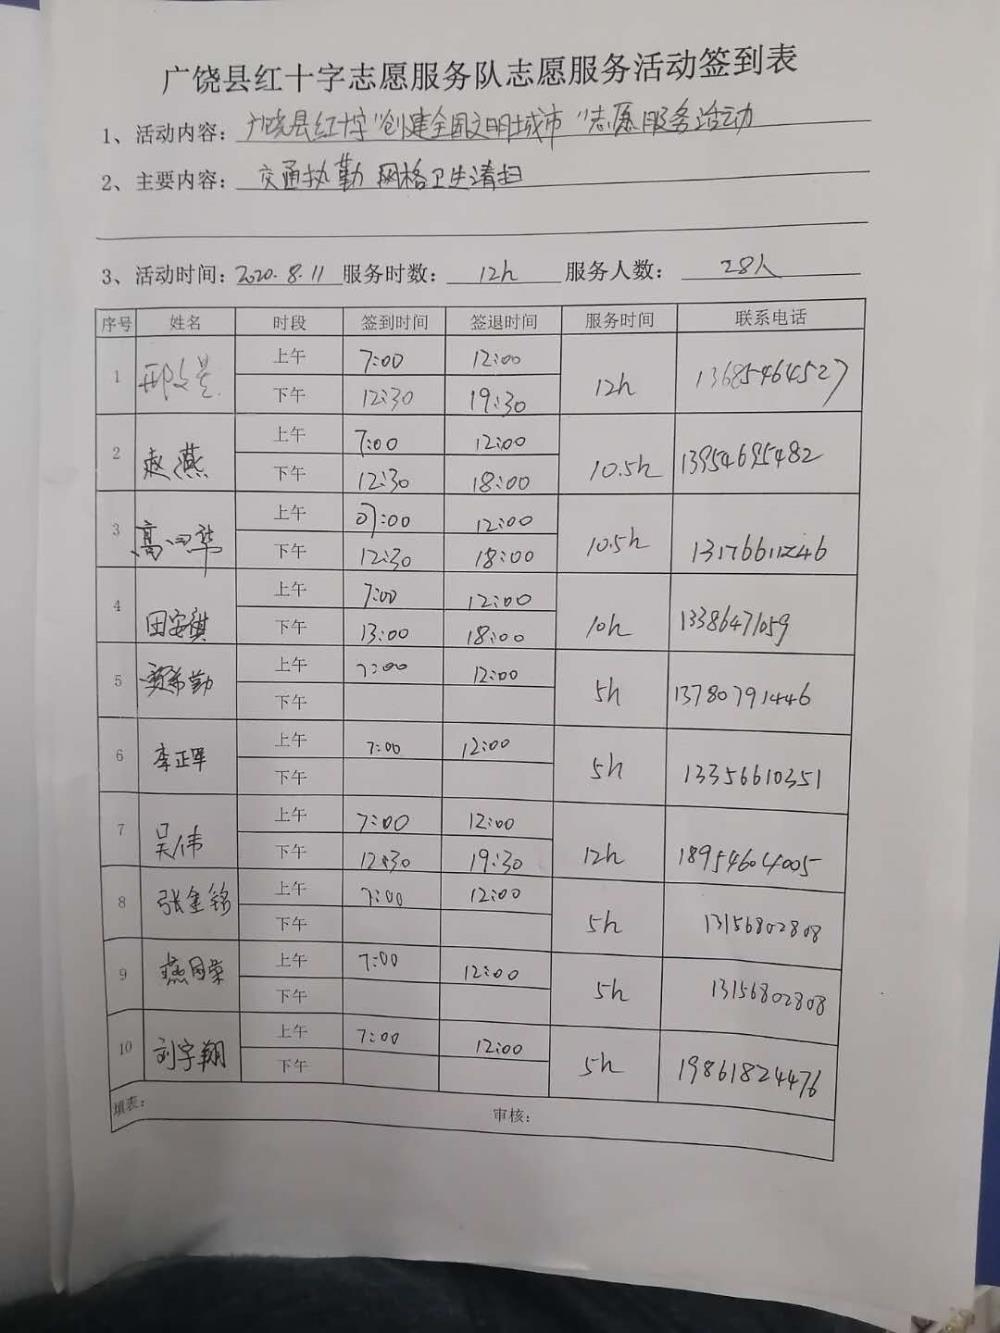 广饶县红十字志愿服务队志愿服务活动签到表
1、活动内容：广饶县红十字"创建全国文明城市"志愿服务活动
2、主要内容：交通执勤 网格卫生清扫
3、活动时间：2020.8.11 服务时数：12h 服务人数：28人
序号 姓名 时段 签到时间 签退时间 服务时间 联系电话
1 上午 7:00 12:00 12h 13685464527
下午 12:30 19:30
2 赵燕 上午 7:00 12:00 10.5h 13954695482
下午 12:30 18:00
3 上午 07:00 12:00 10.5h 13176611246
下午 12:30 18:00
4 田安祺 上午 7:00 12:00 10h 13386471059
下午 13:00 18:00
5 上午 7:00 12:00 5h 13780791446
下午
6 李正军 上午 7:00 12:00 5h 13356610351
下午
7 吴伟 上午 7:00 12:00 12h 18954604005
下午 12:30 19:30
8 张金铭 上午 7:00 12:00 5h 13156802808
下午
9 燕同荣 上午 7:00 12:00 5h 13156802808
下午
10 刘宇翔 上午 7:00 12:00 5h 19861824476
下午
填表： 审核：